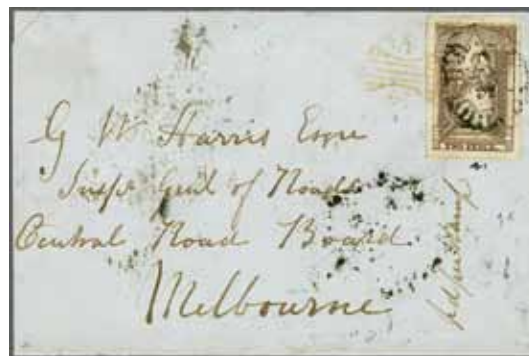 G W Harris Esqre
Inspr Genl of Roads
Central Road Board
Melbourne
TWO PENCE